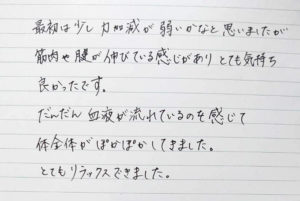 最初は少し力加減が弱いかなと思いましたが
筋肉や腱が伸びている感じがありとても気持ち
良かったです。
だんだん血液が流れているのを感じて
体全体がぽかぽかしてきました。
とてもリラックスできました。